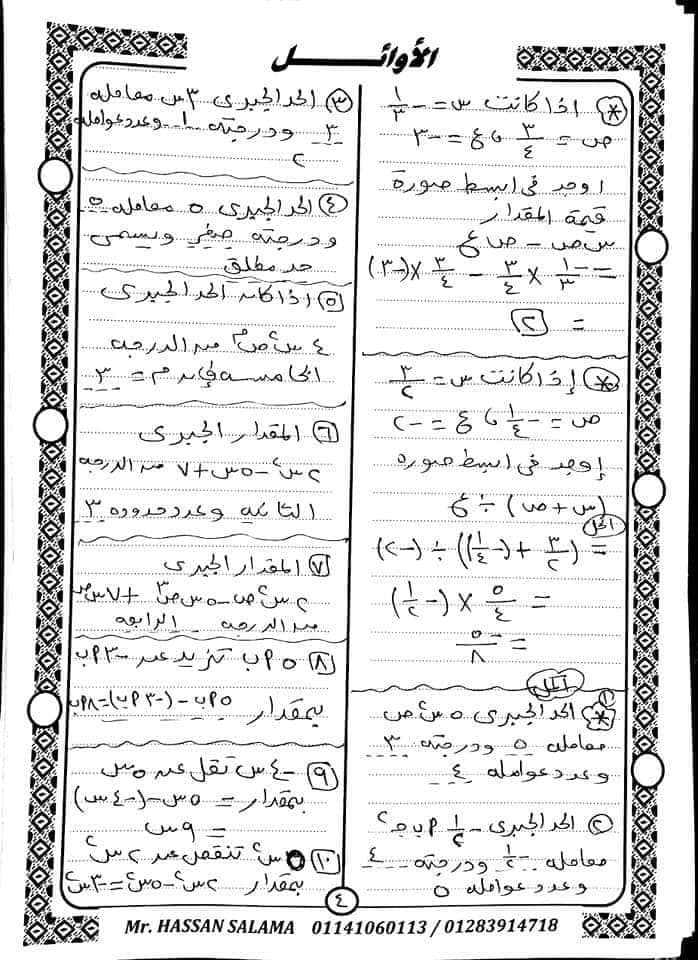 الأوائل
* اذا كانت س = -١/٣
ص = ٣/٤ ، ع = -٣
اوجد فى ابسط صورة
قيمة المقدار
س ص - ص ع
= -١/٣ × ٣/٤ - ٣/٤ × (-٣)
= ٢
* إذا كانت س = ٣/٢
ص = -١/٤ ، ع = -٢
إوجد فى ابسط صوره
(س + ص) ÷ ع
الحل
= (٣/٢ + (-١/٤)) ÷ (-٢)
= ٥/٤ × (-١/٢)
= -٥/٨
أكمل
* ١ الحد الجبرى ٥ س٢ ص
معامله ٥ ودرجته ٣
وعدد عوامله ٤
٢ الحد الجبرى -١/٢ أ ب جـ٢
معامله -١/٢ ودرجته ٤
وعدد عوامله ٥
٣ الحد الجبرى ٣ س معامله
٣ ودرجته ١ وعدد عوامله
٢
٤ الحد الجبرى ٥ معامله ٥
ودرجته صفر ويسمى
حد مطلق
٥ اذا كان الحد الجبرى
٤ س٢ ص م من الدرجه
الخامسه فإن م = ٣
٦ المقدار الجبرى
٢ س٢ - ٥ س + ٧ من الدرجه
الثانيه وعدد حدوده ٣
٧ المقدار الجبرى
٢ س٢ ص - ٥ س ص٣ + ٧ س ص
من الدرجه الرابعه
٨ ٥ أ ب تزيد عن -٣ أ ب
بمقدار ٥ أ ب - (-٣ أ ب) = ٨ أ ب
٩ -٤ س تقل عن ٥ س
بمقدار = ٥ س - (-٤ س)
= ٩ س
١٠ ٥ س٢ تنقص عن ٢ س٢
بمقدار ٢ س٢ - ٥ س٢ = -٣ س٢
٤
Mr. HASSAN SALAMA 01141060113 / 01283914718